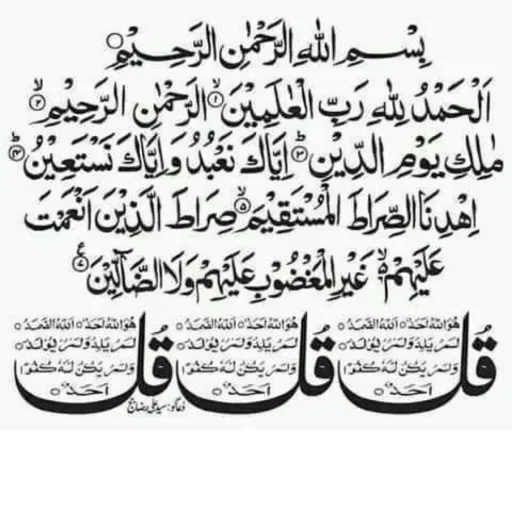 بِسْمِ اللهِ الرَّحْمٰنِ الرَّحِيْمِ ○
اَلْحَمْدُ لِلّٰهِ رَبِّ الْعٰلَمِيْنَ ۙ﴿۱﴾ الرَّحْمٰنِ الرَّحِيْمِ ۙ﴿۲﴾
مٰلِكِ يَوْمِ الدِّيْنِ ؕ﴿۳﴾ اِيَّاكَ نَعْبُدُ وَاِيَّاكَ نَسْتَعِيْنُ ؕ﴿۴﴾
اِهْدِنَا الصِّرَاطَ الْمُسْتَقِيْمَ ۙ﴿۵﴾ صِرَاطَ الَّذِيْنَ اَنْعَمْتَ
عَلَيْهِمْ ۙ﴿۶﴾ غَيْرِ الْمَغْضُوْبِ عَلَيْهِمْ وَلَا الضَّآلِّيْنَ ﴿۷﴾
قُلْ
هُوَ اللهُ اَحَدٌ ○ اَللهُ الصَّمَدُ ○
لَمْ يَلِدْ وَلَمْ يُوْلَدْ ○
وَلَمْ يَكُنْ لَّهٗ كُفُوًا
اَحَدٌ ○
قُلْ
هُوَ اللهُ اَحَدٌ ○ اَللهُ الصَّمَدُ ○
لَمْ يَلِدْ وَلَمْ يُوْلَدْ ○
وَلَمْ يَكُنْ لَّهٗ كُفُوًا
اَحَدٌ ○
قُلْ
هُوَ اللهُ اَحَدٌ ○ اَللهُ الصَّمَدُ ○
لَمْ يَلِدْ وَلَمْ يُوْلَدْ ○
وَلَمْ يَكُنْ لَّهٗ كُفُوًا
اَحَدٌ ○
دعاگو: سید علی رضا